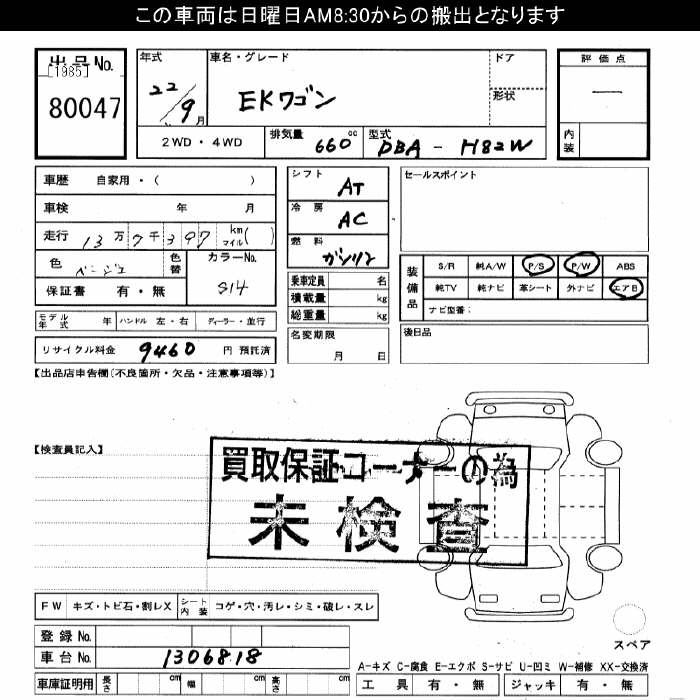 この車両は日曜日AM8:30からの搬出となります
出品No. [1985] 80047
年式 22/9月
車名・グレード EKワゴン
ドア
形状
評価点 —
内装
2WD・4WD
排気量 660cc
型式 DBA-H82W
車歴 自家用・( )
車検 年 月
走行 13万7千397 km マイル( )
色 ベージュ 色替
カラーNo. S14
保証書 有・無
シフト AT
冷房 AC
燃料 ガソリン
乗車定員 名
積載量 kg
総重量 kg
セールスポイント
装備品
S/R 純A/W P/S P/W ABS
純TV 純ナビ 革シート 外ナビ エアB
ナビ型番:
モデル年式 年 ハンドル 左・右 ディーラー・並行
名変期限 月 日
後日品
リサイクル料金 9460 円 預託済
【出品店申告欄(不良箇所・欠品・注意事項等)】
【検査員記入】
買取保証コーナーの為
未検査
FW キズ・トビ石・割レX シート内装 コゲ・穴・汚レ・シミ・破レ・スレ
スペア
登録No.
車台No. 1306818
A-キズ C-腐食 E-エクボ S-サビ U-凹ミ W-補修 XX-交換済
車庫証明用 長さ cm 幅 cm 高さ cm
工具 有・無 ジャッキ 有・無